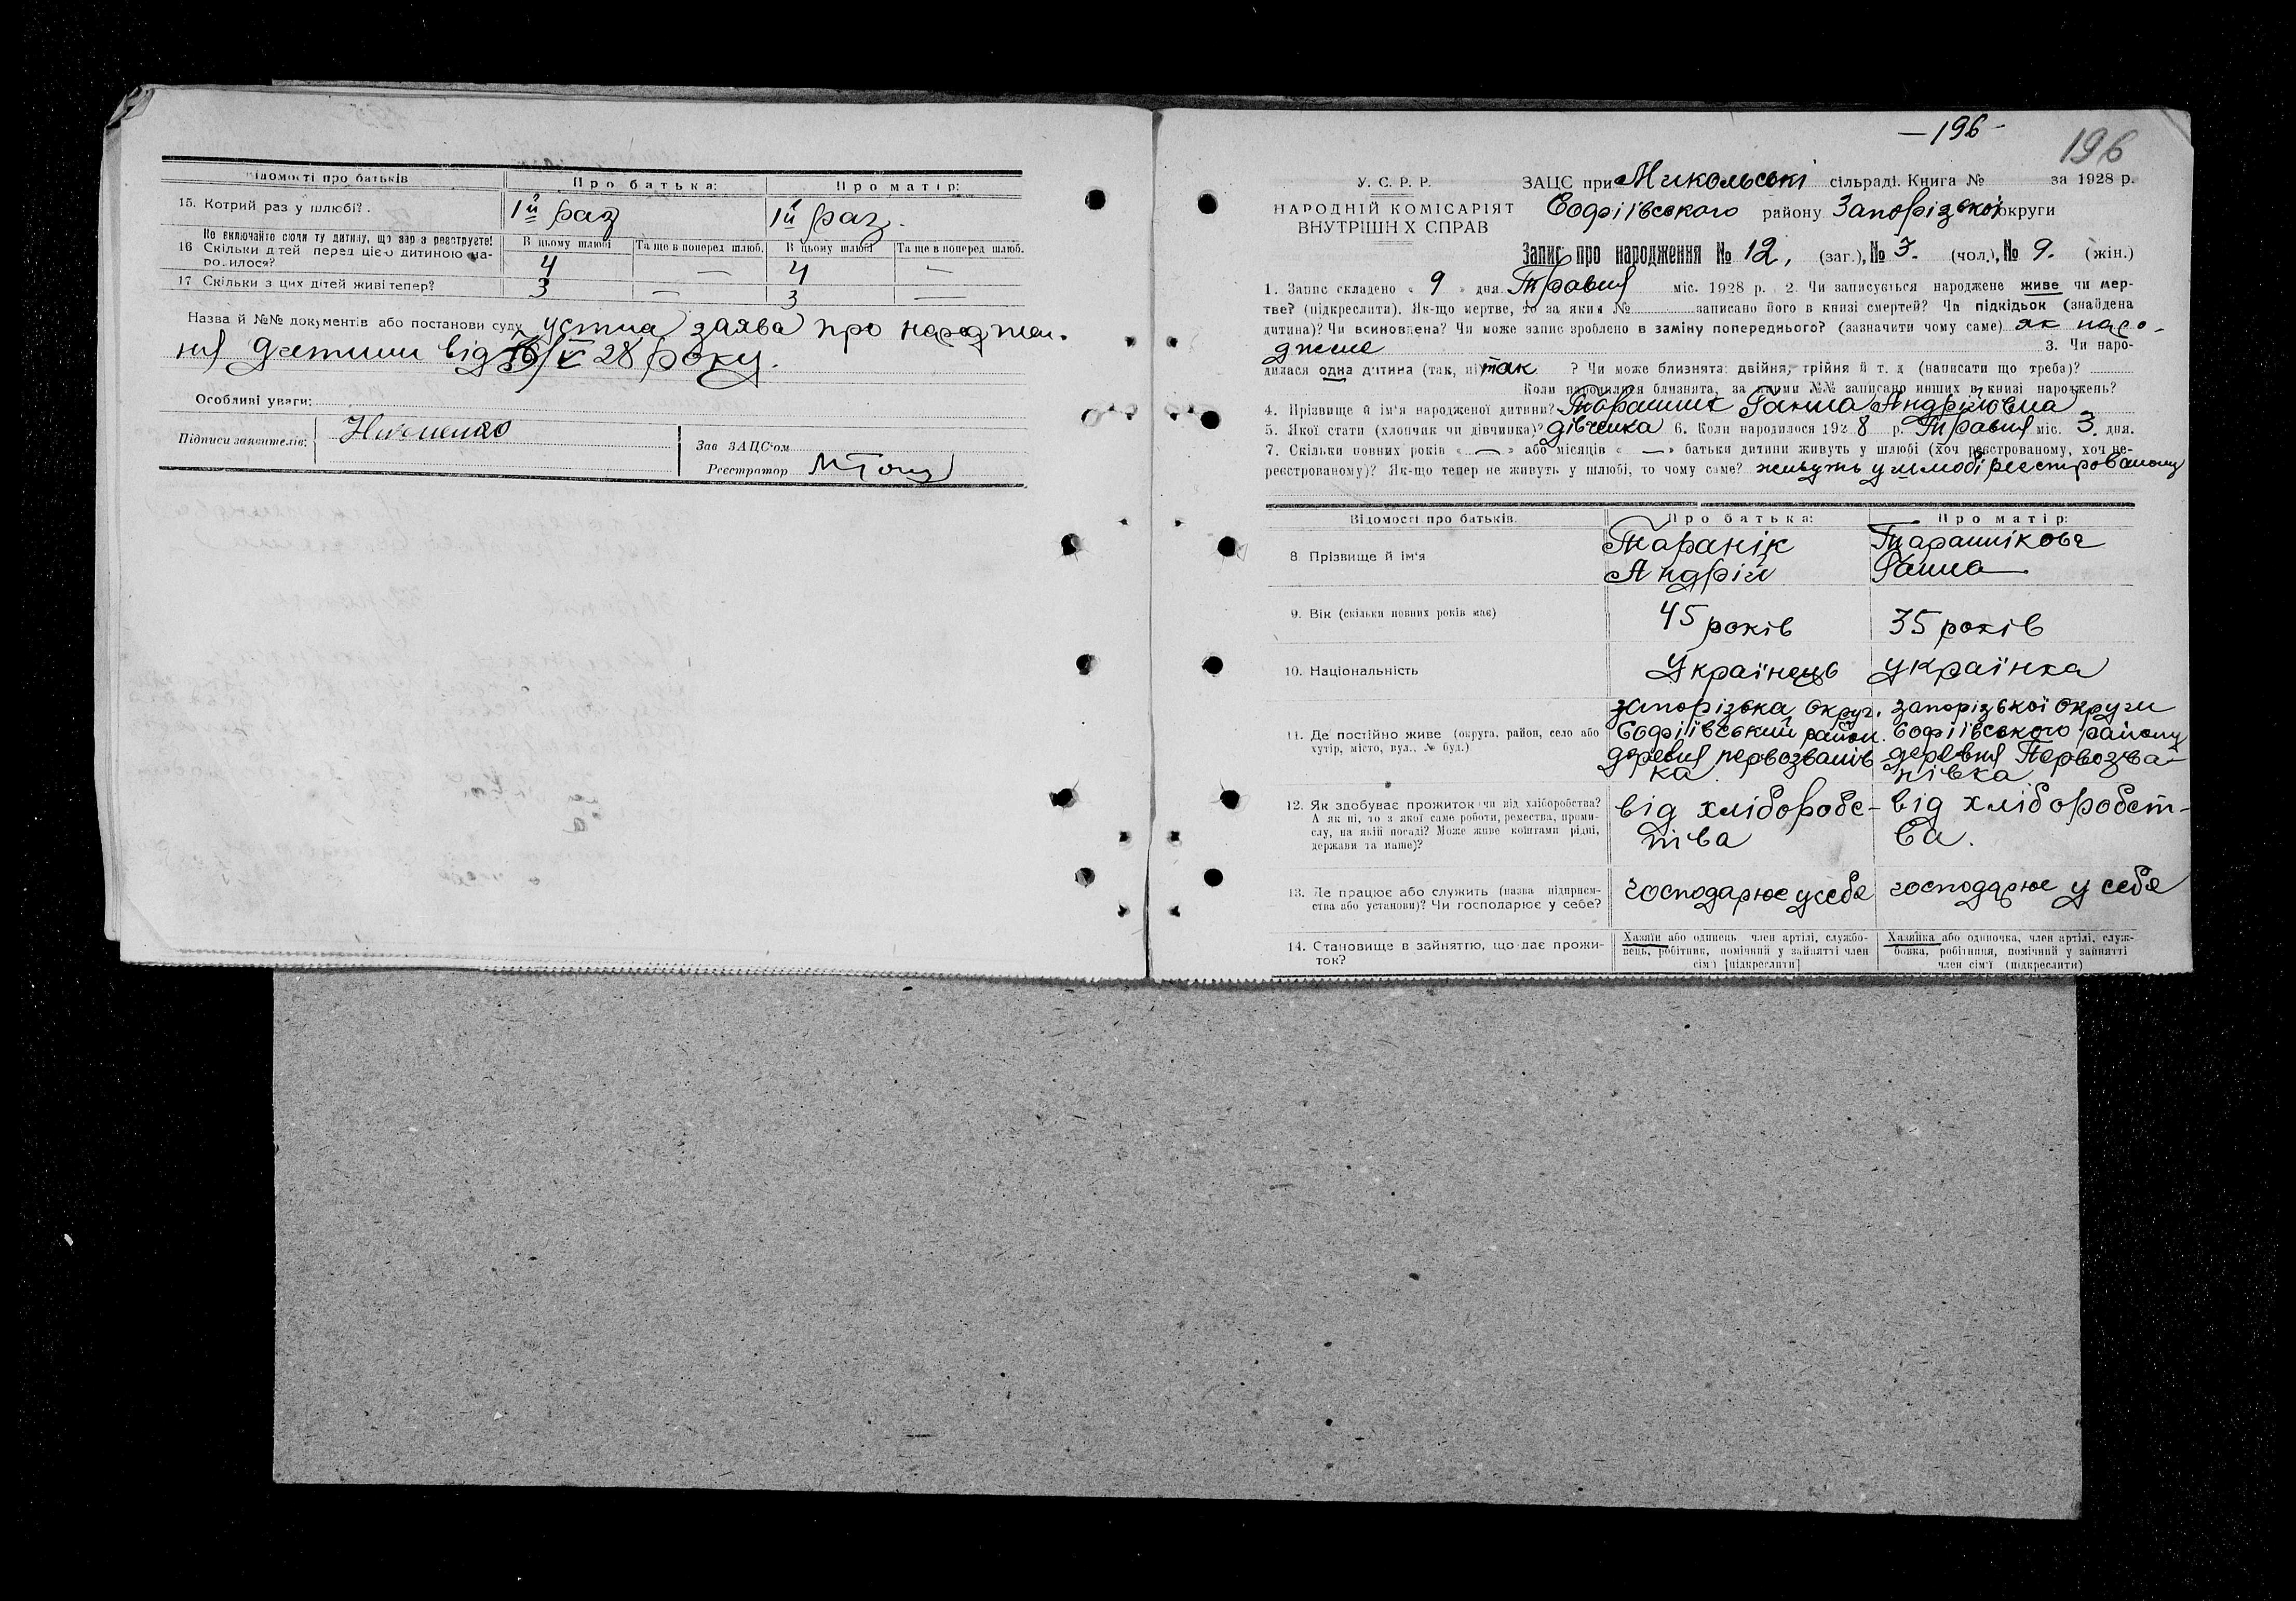 Відомості про батьків
Про батька:
Про матір:
15. Котрий раз у шлюбі?
1й раз
1й раз.
Не включайте сюди ту дитину, що зараз реєструєте!
16 Скільки дітей перед цією дитиною народилося?
В цьому шлюбі
Та ще в поперед шлюб.
В цьому шлюбі
Та ще в поперед шлюб.
4 — 4 —
17 Скільки з цих дітей живі тепер?
3 — 3 —
Назва й №№ документів або постанови суду устна заява про народжен.
ня дитини від /V 28 року.
Особливі уваги:
Підписи заявителів:
Зав ЗАЦС'ом
Реєстратор
— 196 -
196
У. С. Р. Р.
НАРОДНІЙ КОМІСАРІЯТ
ВНУТРІШНІХ СПРАВ
ЗАЦС при Микольські сільраді. Книга № за 1928 р.
Софіївського району Запорізької округи
Запис про народження № 12, (заг.), № 3. (чол.), № 9. (жін.)
1. Запис складено « 9 » дня Травня міс. 1928 р. 2. Чи записується народжене живе чи мер-
тве? (підкреслити). Як-що мертве, то за яким № записано його в книзі смертей? Чи підкідьок (знайдена
дитина)? Чи всиновлена? Чи може запис зроблено в заміну попереднього? (зазначити чому саме) як наро-
джене 3. Чи наро-
дилася одна дитина (так, ні) так ? Чи може близнята: двійня, трійня й т. д (написати що треба)?
Коли народилися близнята, за якими №№ записано инших в книзі народжень?
4. Прізвище й ім'я народженої дитини? Тараник Ганна Андріївна
5. Якої стати (хлопчик чи дівчинка)? дівченка 6. Коли народилося 1928 р. Травня міс. 3. дня.
7. Скільки повних років « — » або місяців « — » батьки дитини живуть у шлюбі (хоч реєстрованому, хоч не-
реєстрованому)? Як-що тепер не живуть у шлюбі, то чому саме? живуть у шлюбі реєстрованому
Відомості про батьків.
Про батька:
Про матір:
8 Прізвище й ім'я
Таранік
Андрій
Тараннікова
Ганна
9. Вік (скільки повних років має)
45 років
35 років
10. Національність
Українець
українка
11. Де постійно живе (округа, район, село або
хутір, місто, вул., № буд.)
запорізька округ.
Софіївський район.
деревня первозванів
ка
запорізької округи
Софіївського району
деревня Первозва-
нівка
12. Як здобуває прожиток чи від хліборобства?
А як ні, то з якої саме роботи, ремества, проми-
слу, на якій посаді? Може живе коштами рідні,
держави та инше)?
від хліборобс-
тва
від хліборобст-
ва.
13. Де працює або служить (назва підприєм-
ства або установи)? Чи господарює у себе?
господарює у себе
господарює у себе
14. Становище в зайняттю, що дає прожи-
ток?
Хазяїн або одинець член артілі, службо-
вець, робітник, помічний у зайнятті член
сім'ї [підкреслити]
Хазяйка або одиночка, член артілі, служ-
бовка, робітниця, помічний у зайнятті
член сім'ї (підкреслити)